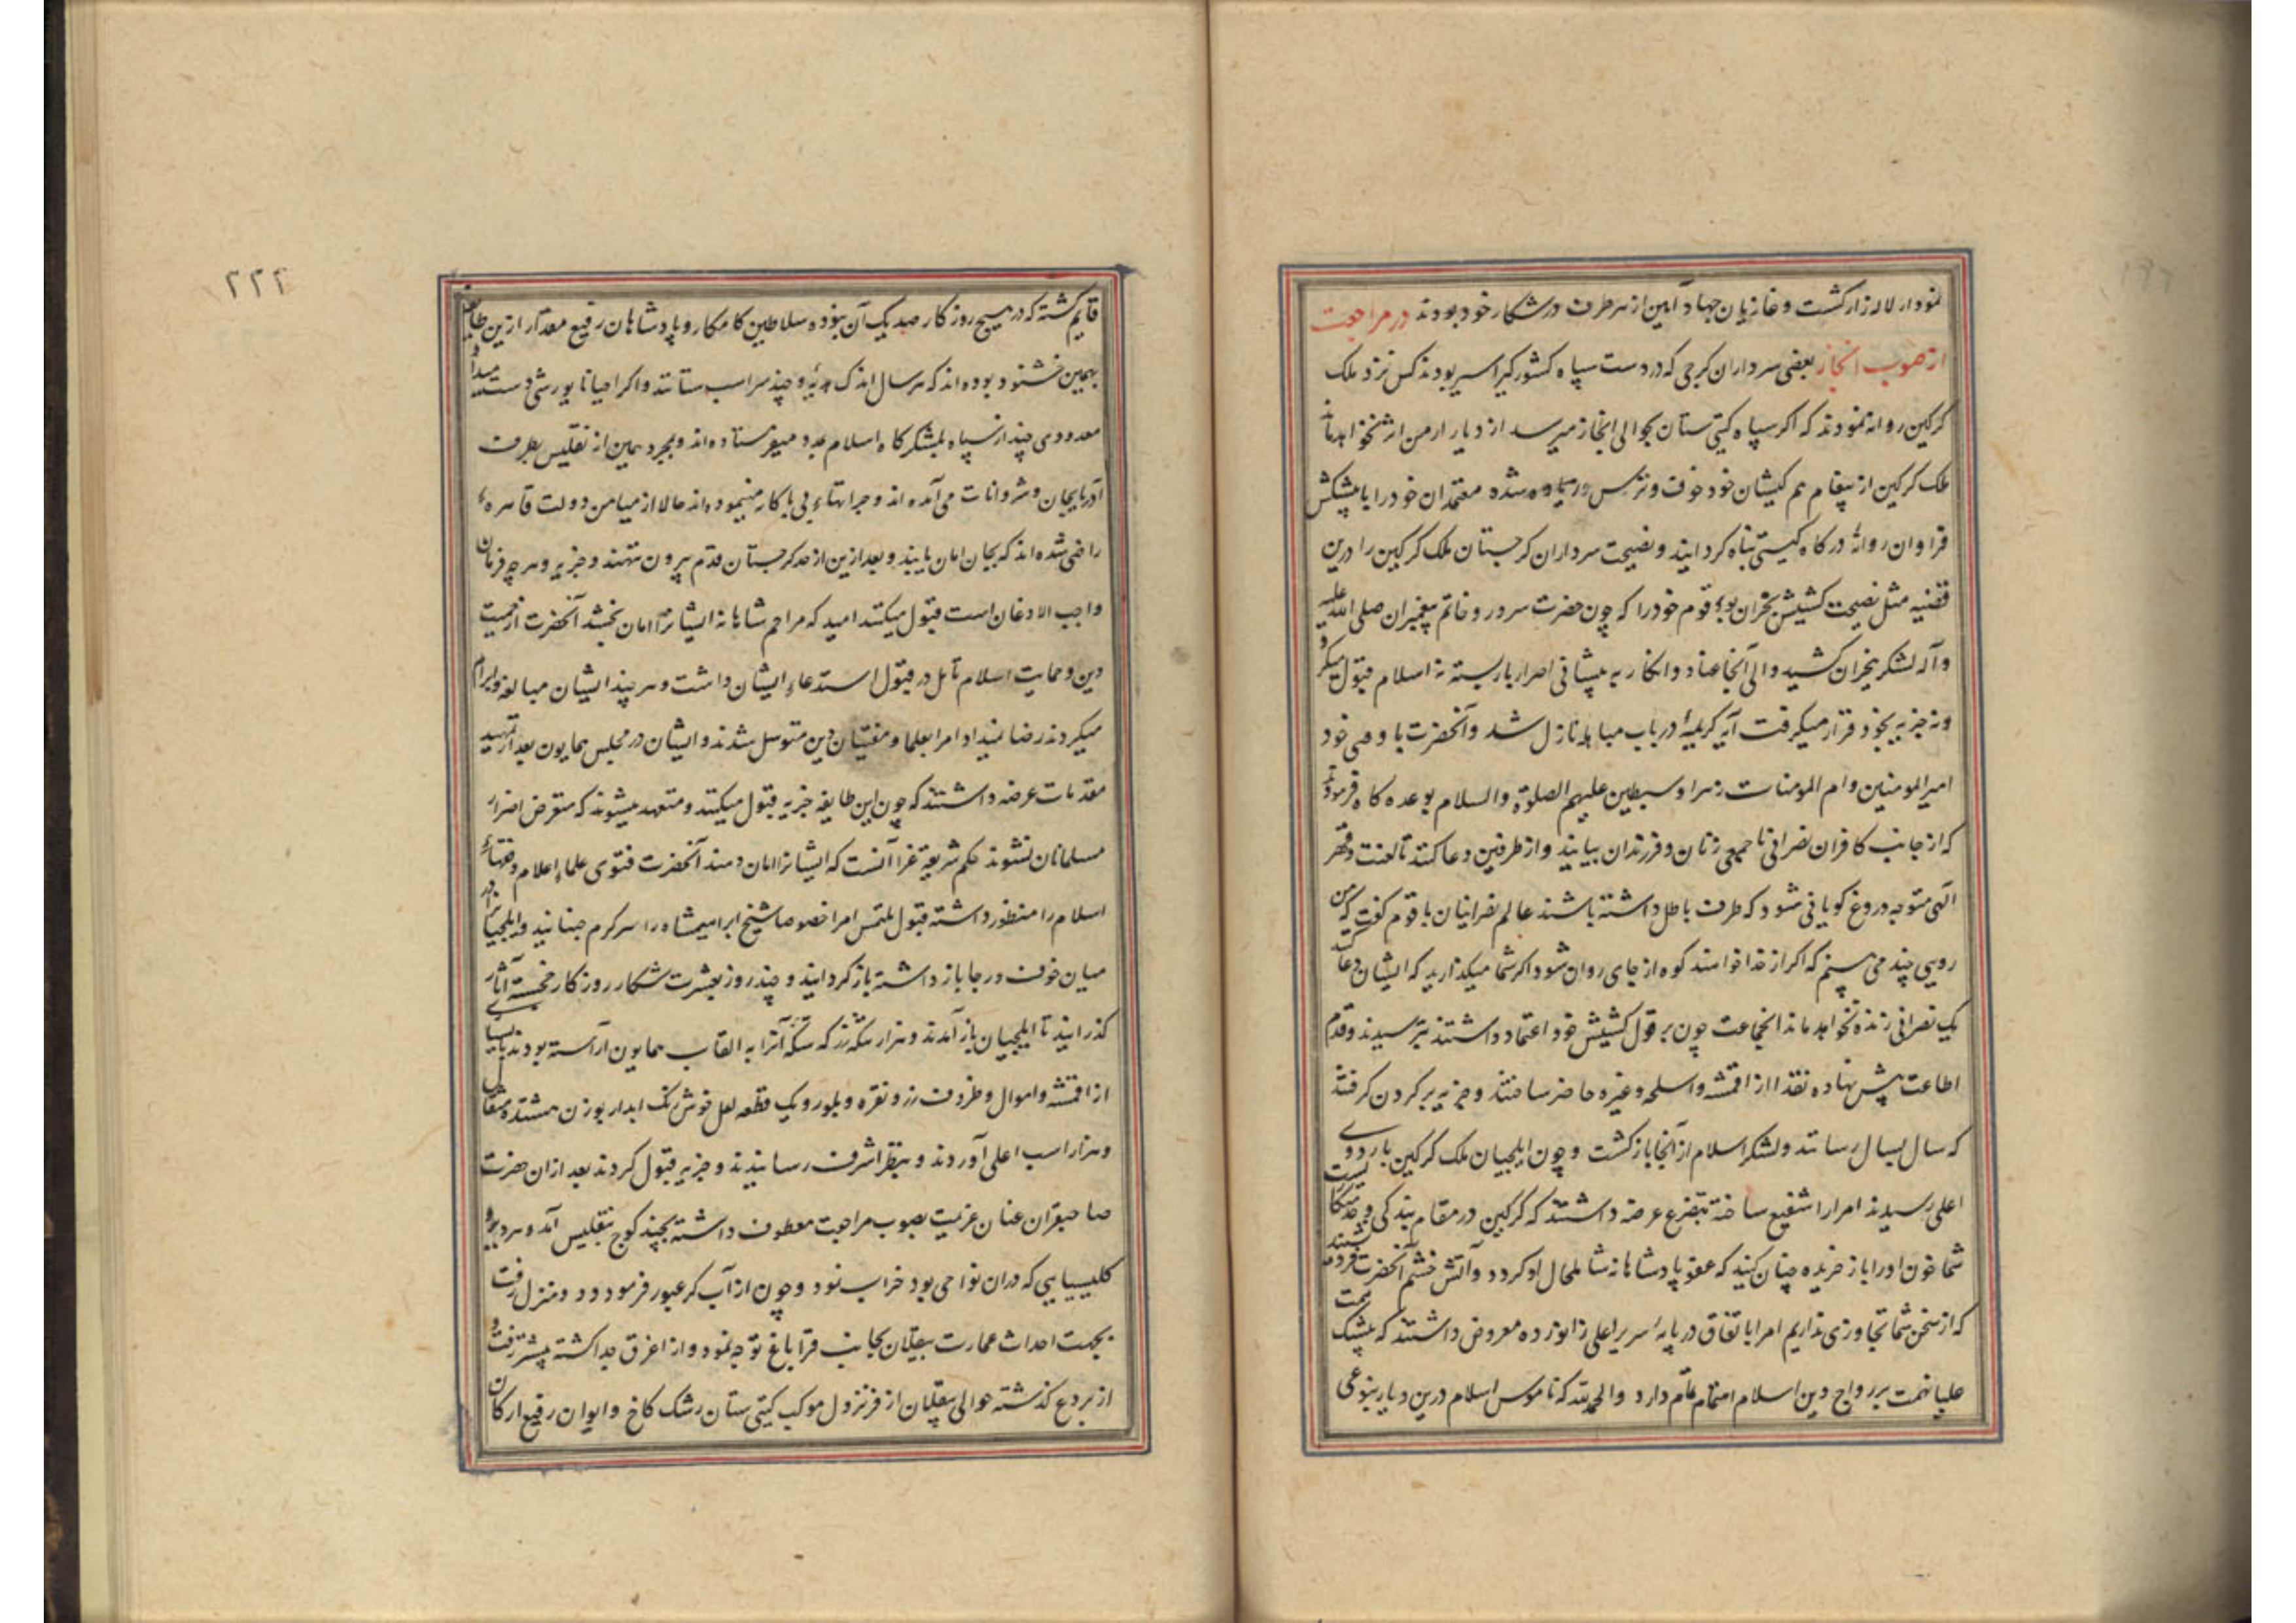 نمودار لاله زار کشت و غازیان جهاد آیین از هر طرف در شکار خود بودند در مراجعت
از صوب انجاز بعضی سرداران کرجی که در دست سپاه کشور کیر اسیر بودند کس نزد ملک
کرکین روانه نمودند که اکر سپاه کیتی ستان بحوالی انجاز میرسد از دیار ارمن اثر نخواهد ماند
ملک کرکین از پیغام هم کیشان خود خوف و ترس شده معتمدان خود را با پیشکش
فراوان روانهٔ درکاه کیتی پناه کردانید و نصیحت سرداران کرجستان ملک کرکین را درین
قضیه مثل نصیحت کشیش نجران بود قوم خود را که چون حضرت سرور و خاتم پیغمبران صلی الله علیه
و آله لشکر بنجران کشید والی آنجا عناد و انکار به پیشانی اصرار باز بسته نه اسلام قبول میکرد
و نه جزیه بخود قرار میکرفت آیه کریمهٔ در باب مباهله نازل شد و آنحضرت با وصی خود
امیر المومنین و ام المومنات زهرا و سبطین علیهم الصلوة والسلام بوعده کاه فرمودند
که از جانب کافران نصرانی تا جمعی زنان و فرزندان بیایند و از طرفین دعا کنند تا لعنت و قهر
الهی متوجه دروغ کویانی شود که طرف باطل داشته باشند عالم نصرانیان با قوم کفت که من
رویی چند می بینم که اکر از خدا خواهند کوه از جای روان شود اکر شما میکذارید که ایشان دعا کنند
یک نصرانی زنده نخواهد ماند انجماعت چون بر قول کشیش خود اعتماد داشتند بترسیدند و قدم
اطاعت پیش نهاده نقدا از اقمشه و اسلحه و غیره حاضر ساختند و جزیه بر کردن کرفتند
که سال بسال رسانند و لشکر اسلام از آنجا بازکشت و چون ایلچیان ملک کرکین باردوی
اعلی رسیدند امرا را شفیع ساخته بتضرع عرضه داشتند که کرکین در مقام بندکی و خدمتکاریست
شما خون او را باز خریده چنان کنید که عفو پادشاهانه شامل حال او کردد و آتش خشم آنحضرت فرو نشیند
که از سخن شما تجاوزی نداریم امرا باتفاق در پایهٔ سریر اعلی زانو زده معروض داشتند که پیشکش
علیا نهمت بر رواج دین اسلام اهتمام تمام دارد و الحمد لله که ناموس اسلام درین دیار بنوعی
۲۲۲
قایم کشته که در هیچ روزکار صد یک آن نبوده سلاطین کامکار و پادشاهان رفیع مقدار ازین طایفه
بهمین خشنود بوده اند که هر سال اندک هدیهٔ و چند سر اسب ستانند و اکر احیانا یورشی دست میداد
معدودی چند از سپاه بلشکرکاه اسلام بمدد میفرستاده اند و بمجرد همین از تفلیس بطرف
آذربایجان و شروانات می آمده اند و جراتهاء بی باکار مینموده اند حالا از میامن دولت قاهره
راضی شده اند که بجان امان یابند و بعد ازین از حد کرجستان قدم بیرون ننهند و جزیه و هر چه فرمان
واجب الاذعان است قبول میکنند امید که مراحم شاهانه ایشانرا امان بخشد آنحضرت از حمیت
دین و حمایت اسلام تامل در قبول استدعاء ایشان داشت و هر چند ایشان مبالغه و ابرام
میکردند رضا نمیداد امرا بعلما و مفتیان دین متوسل شدند و ایشان در مجلس همایون بعد از تمهید
مقدمات عرضه داشتند که چون این طایفه جزیه قبول میکنند و متعهد میشوند که متعرض اضرار
مسلمانان نشوند حکم شریعة غرا آنست که ایشانرا امان دهند آنحضرت فتوی علماء اعلام و فقهاء
اسلام را منظور داشته قبول ملتمس امرا خصوصا شیخ ابراهیمشاه را سر کرم جنبانید و ایلچیانرا در
میان خوف و رجا باز داشته باز کردانید و چند روز بعشرت شکار روزکار خجسته آثار
کذرانید تا ایلچیان باز آمدند و هزار تنکه زر که سکه آنرا به القاب همایون آراسته بودند با بسیاری
از اقمشه و اموال و ظروف زر و نقره و بلور و یک قطعه لعل خوش رنک ابدار بوزن هشتده مثقال
و هزار اسب اعلی آوردند و بنظر اشرف رسانیدند و جزیه قبول کردند بعد ازان حضرت
صاحبقران عنان عزیمت بصوب مراجعت معطوف داشته بچند کوچ بتفلیس آمد و هر دیر و
کلیسیایی که دران نواحی بود خراب نمود و چون از آب کر عبور فرمود دو منزل رفت
بجهت احداث عمارت بیلقان بجانب قراباغ توجه نمود و از اغرق جدا کشته پیشتر رفت و
از بردع کذشته حوالی بیلقان از فر نزول موکب کیتی ستان رشک کاخ و ایوان رفیع ارکان